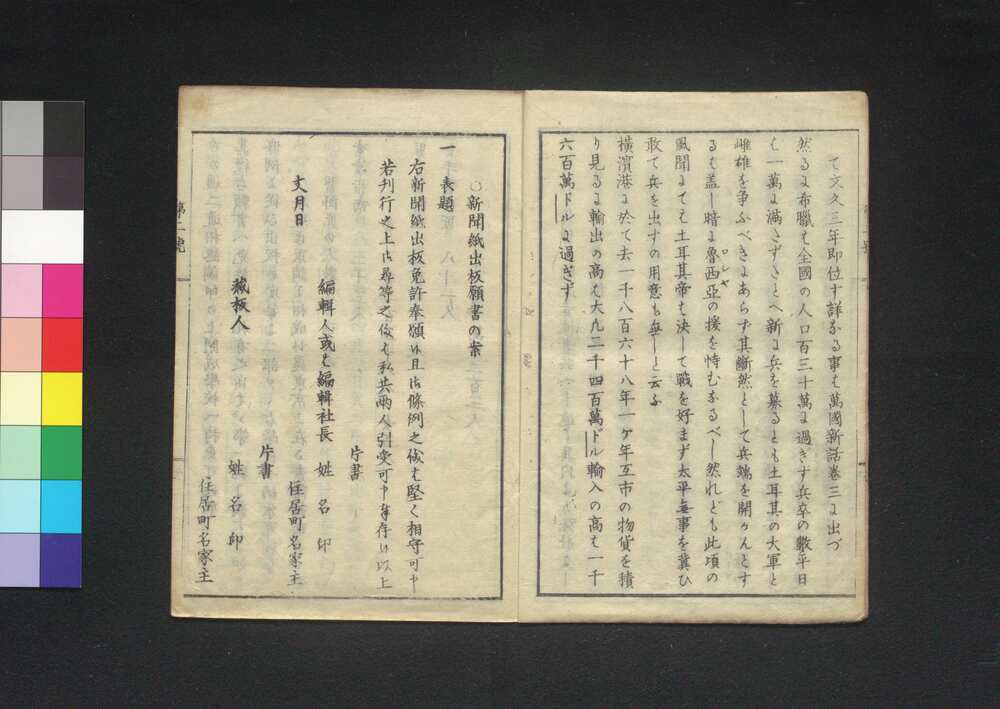 て文久三年即位す詳なる事は萬國新話卷三に出づ
然るに希臘は全國の人口百三十萬に過ぎず兵卒の數平日
は一萬に滿さずたとへ新に兵を募るとも土耳其の大軍と
雌雄を爭ふべきにあらず其斷然として兵端を開かんとす
るは盖し暗に魯西亞の援を恃むなるべし然れども此頃の
ロシヤ
風聞にても土耳其帝も决して戰を好まず太平無事を冀ひ
敢て兵を出すの用意も無しと云ふ
橫濱港に於て去一千八百六十八年一ケ年互市の物貨を積
り見るに輸出の高は大凡二千四百萬ドル輸入の高は一千
六百萬ドルに過ぎず
○新聞紙出板願書の案
一 表題
右新聞紙出板免許奉願候且御條例之儀は堅く相守可申
若刊行之上御尋等之儀は私共兩人引受可申奉存候以上
片書
編輯人或は編輯社長 姓 名 印
住居町名家主
文月日
片書
藏板人 姓 名 印
住居町名家主
第二號